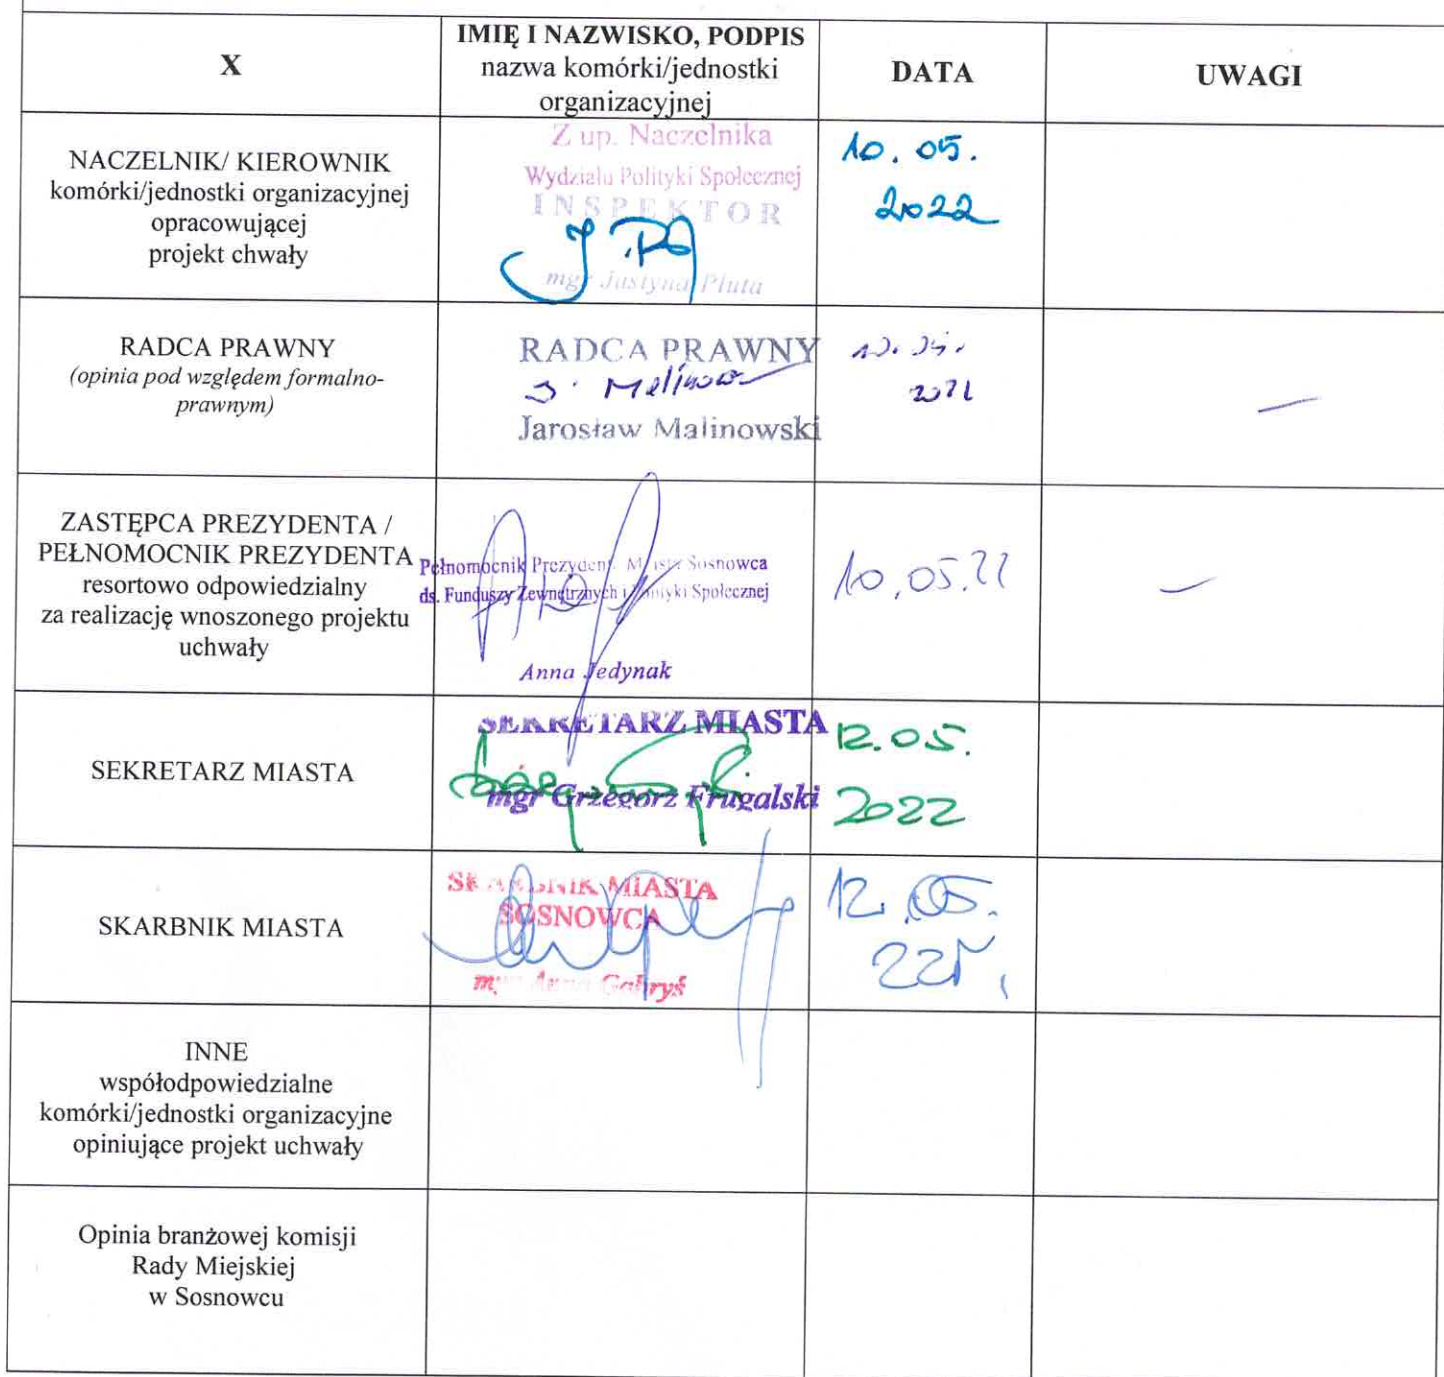 X
IMIĘ I NAZWISKO, PODPIS
nazwa komórki/jednostki
organizacyjnej
DATA
UWAGI
NACZELNIK/ KIEROWNIK
komórki/jednostki organizacyjnej
opracowującej
projekt chwały
Z up. Naczelnika
Wydziału Polityki Społecznej
INSPEKTOR
mgr Justyna Pluta
10.05.
2022
RADCA PRAWNY
(opinia pod względem formalno-
prawnym)
RADCA PRAWNY
Jarosław Malinowski
ZASTĘPCA PREZYDENTA /
PEŁNOMOCNIK PREZYDENTA
resortowo odpowiedzialny
za realizację wnoszonego projektu
uchwały
Pełnomocnik Prezydenta Miasta Sosnowca
ds. Funduszy Zewnętrznych i Polityki Społecznej
Anna Jedynak
10.05.22
SEKRETARZ MIASTA
SEKRETARZ MIASTA
mgr Grzegorz Frugalski
12.05.
2022
SKARBNIK MIASTA
SKARBNIK MIASTA
SOSNOWCA
mgr Anna Gabryś
12.05.
22r.
INNE
współodpowiedzialne
komórki/jednostki organizacyjne
opiniujące projekt uchwały
Opinia branżowej komisji
Rady Miejskiej
w Sosnowcu